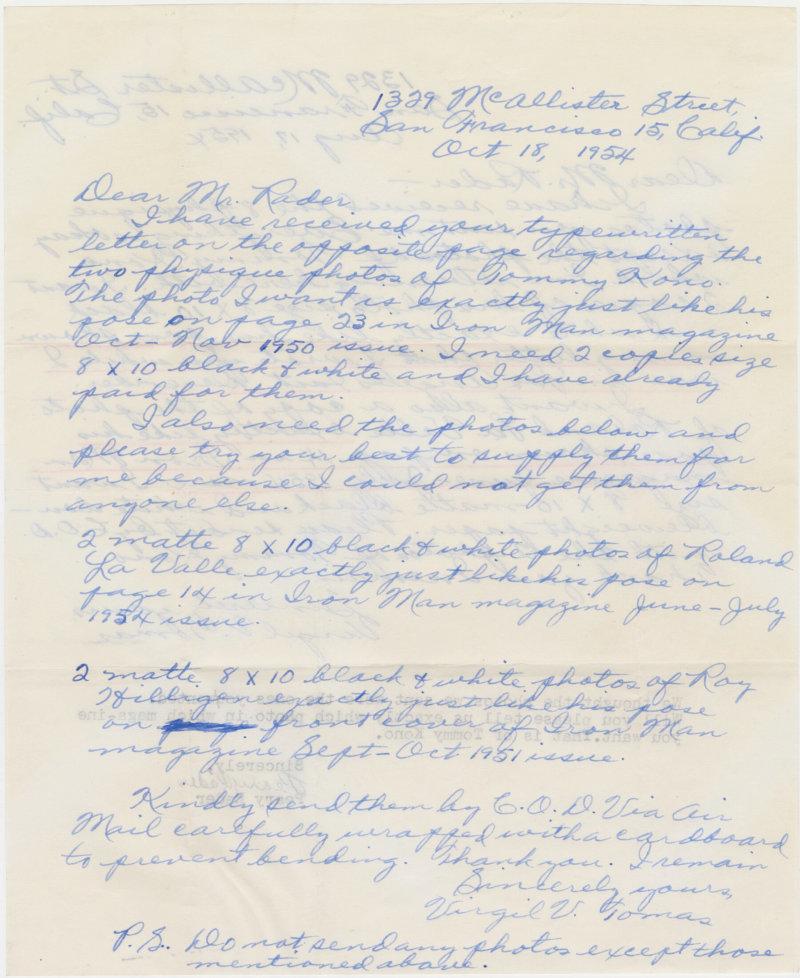 1329 McAllister Street,
San Francisco 15, Calif.
Oct 18, 1954
Dear Mr. Rader,
I have received your typewritten
letter on the opposite page regarding the
two physique photos of Tommy Kono.
The photo I want is exactly just like his
pose on page 23 in Iron Man magazine
Oct-Nov 1950 issue. I need 2 copies size
8 X 10 black & white and I have already
paid for them.
I also need the photos below and
please try your best to supply them for
me because I could not get them from
anyone else.
2 matte 8 X 10 black & white photos of Roland
La Valle exactly just like his pose on
page 14 in Iron Man magazine June-July
1954 issue.
2 matte 8 X 10 black & white photos of Roy
Hilligan exactly just like his pose
on front cover of Iron Man
magazine Sept-Oct 1951 issue.
Kindly send them by C.O.D. Via Air
Mail carefully wrapped with a cardboard
to prevent bending. Thank you. I remain
Sincerely yours,
Virgil V. Tomas
P.S. Do not send any photos except those
mentioned above.